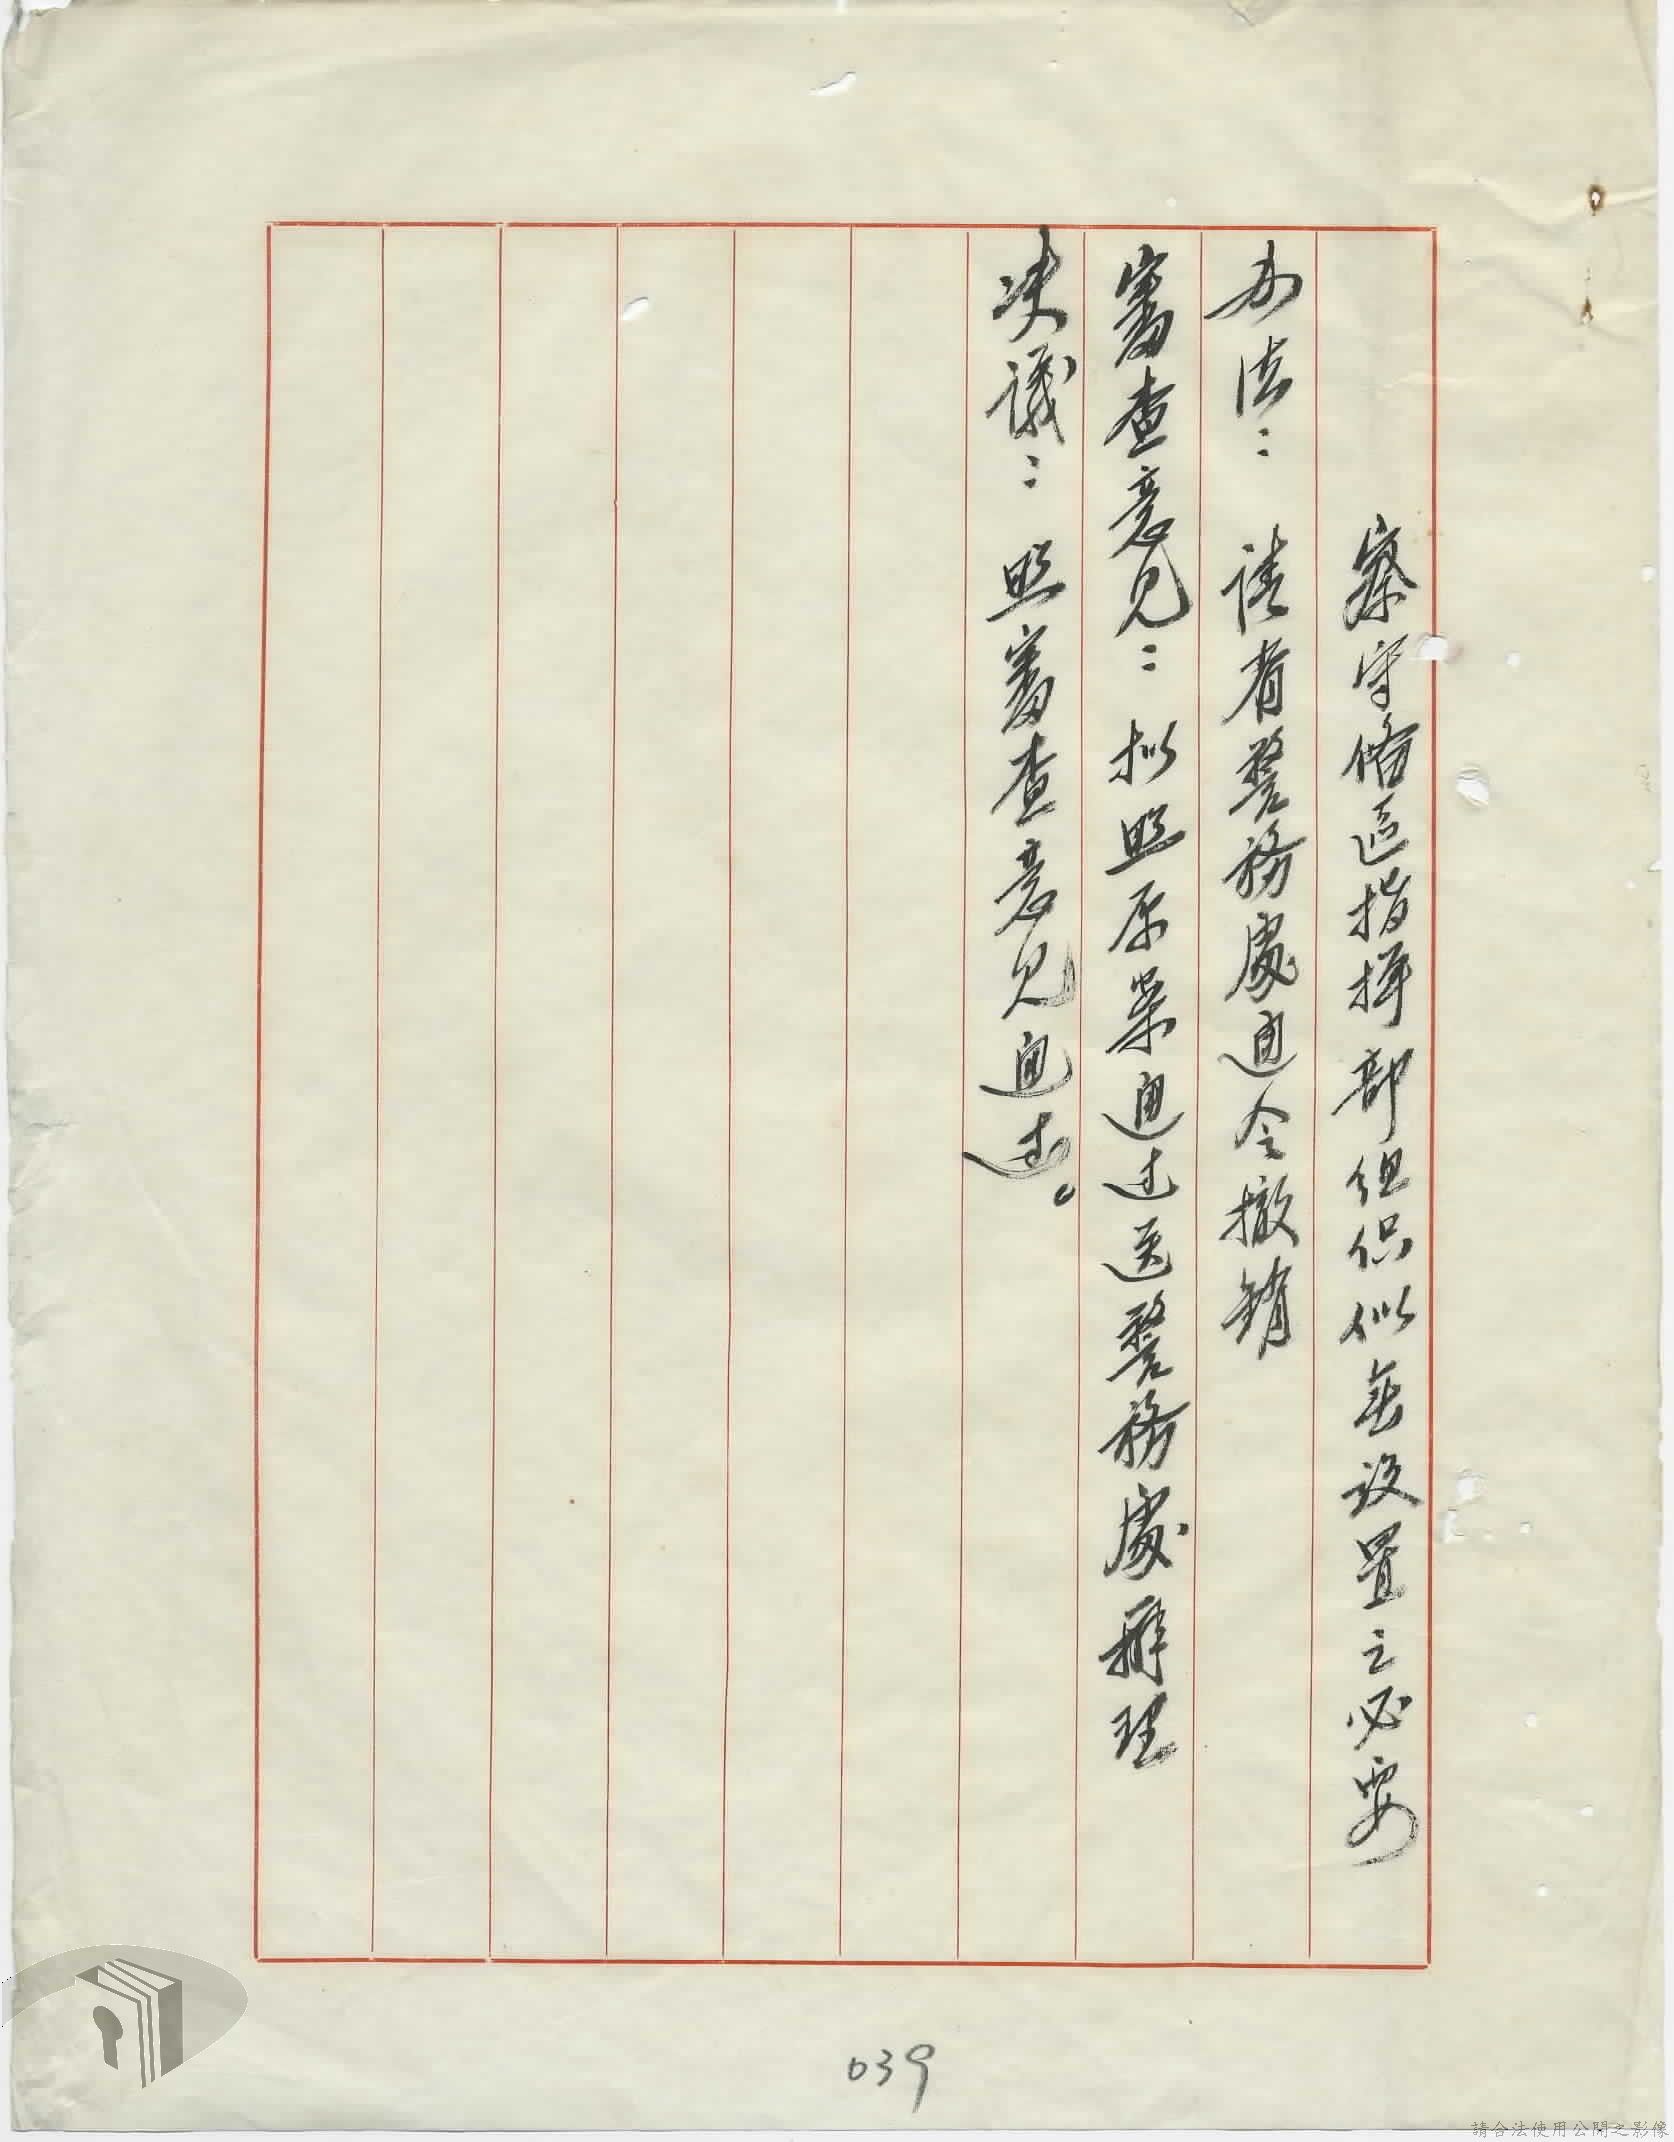 察守備區指揮部组织似無設置之必要
办法：請省警務處通令撤銷
審查意見：拟照原案通过送警務處辦理
决議：照審查意見通过。
039
請合法使用公開之影像